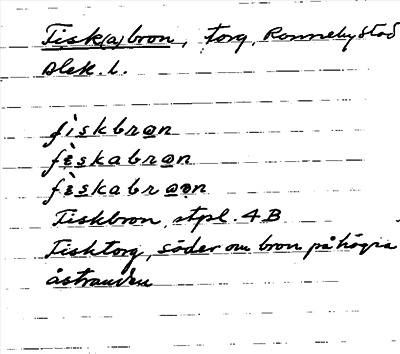 Fisk(a)bron, torg, Ronneby stad
Blek. l.
fìskbro̲n
fìskabro̲n
fìskabra̲o̲n
Fiskbron, stpl. 4 B
Fisktorg, söder om bron på högra
åstranden